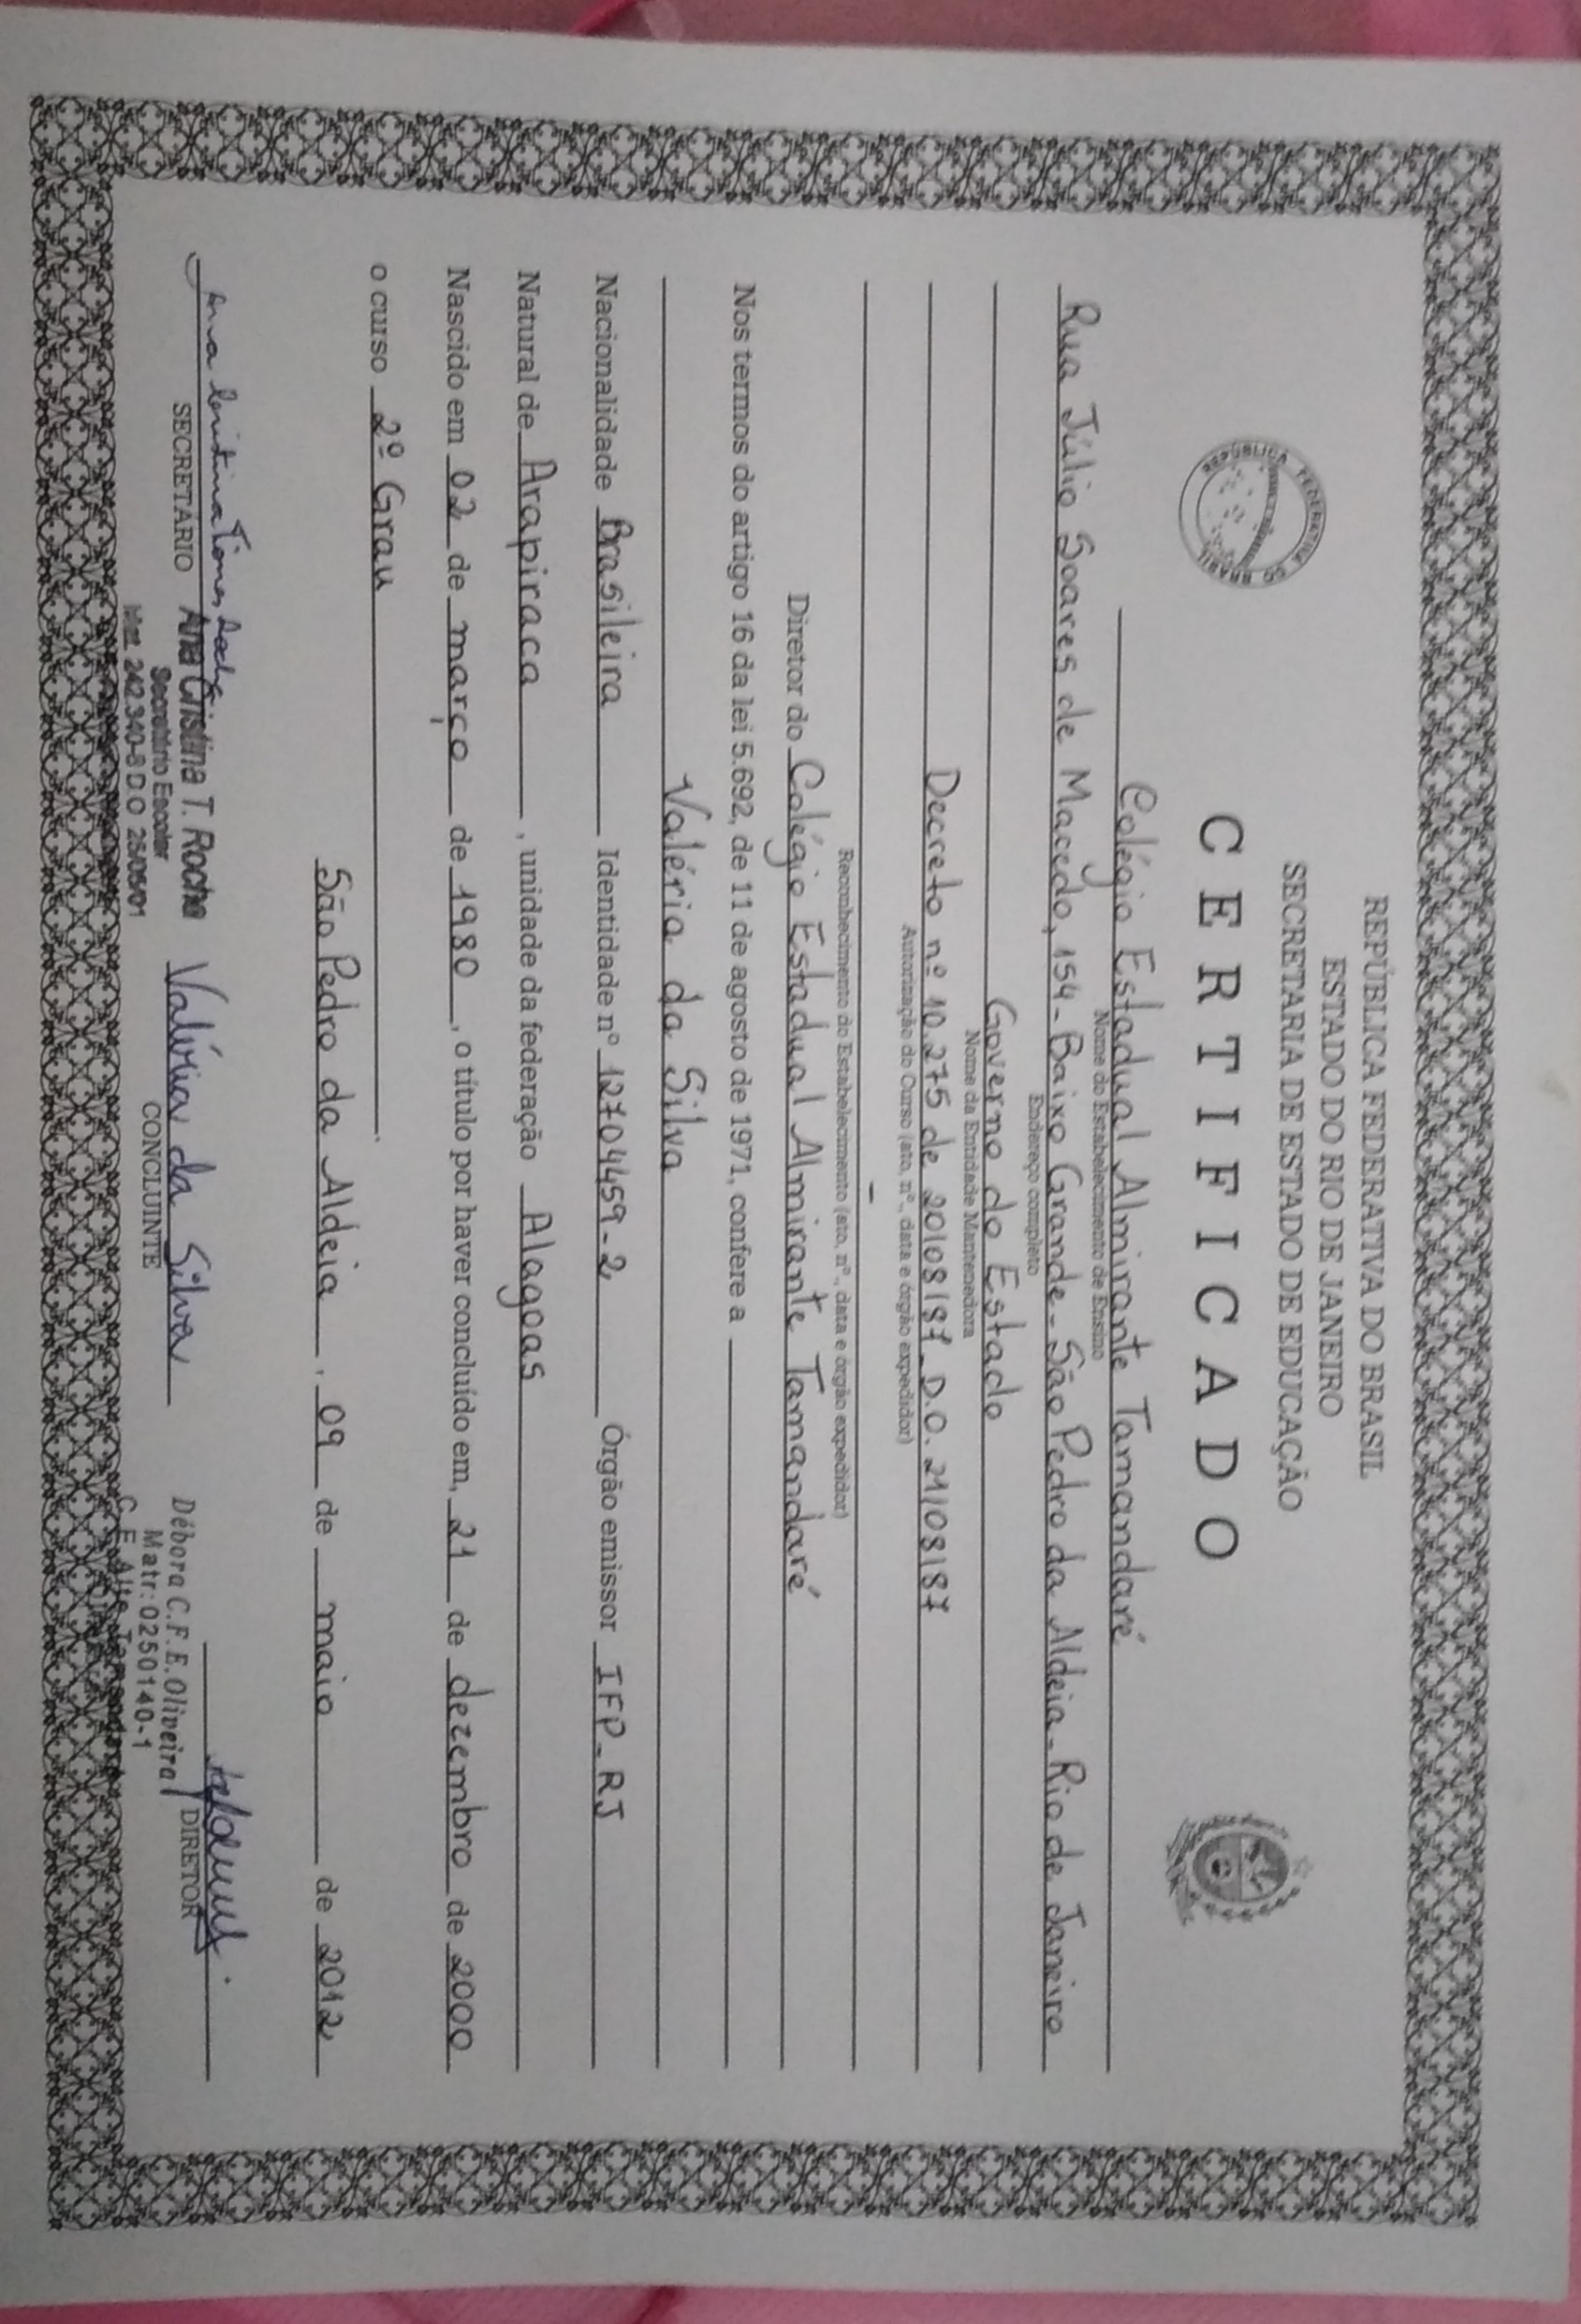 REPÚBLICA FEDERATIVA DO BRASIL
ESTADO DO RIO DE JANEIRO
SECRETARIA DE ESTADO DE EDUCAÇÃO
REPÚBLICA FEDERATIVA DO BRASIL
CERTIFICADO
Colégio Estadual Almirante Tamandaré
Nome do Estabelecimento de Ensino
Rua Júlio Soares de Macedo, 154 - Baixo Grande - São Pedro da Aldeia - Rio de Janeiro
Endereço completo
Governo do Estado
Nome da Entidade Mantenedora
Decreto nº 10.275 de 20/08/87 D.O. 21/08/87
Autorização do Curso (ato, nº., data e órgão expedidor)
Reconhecimento do Estabelecimento (ato, nº., data e órgão expedidor)
Diretor do Colégio Estadual Almirante Tamandaré
Nos termos do artigo 16 da lei 5.692, de 11 de agosto de 1971, confere a
Valéria da Silva
Nacionalidade Brasileira Identidade nº 12704459-2 Órgão emissor IFP-RJ
Natural de Arapiraca, unidade da federação Alagoas
Nascido em 02 de março de 1980, o título por haver concluído em, 21 de dezembro de 2000
o curso 2º Grau.
São Pedro da Aldeia, 09 de maio de 2012
Valéria da Silva
SECRETÁRIO Ana Cristina T. Rocha CONCLUINTE Débora C.F.E. Oliveira DIRETOR
Secretário Escolar Matr: 0250140-1
Mat. 242.340-8 D.O 25/05/01 C. E. Alte. Tamandaré